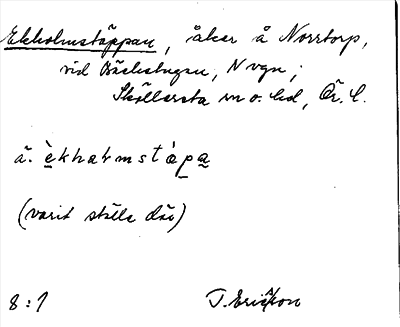 Ekholmstäppan, åker å Norrtorp,
vid Bäckstugan, N vgn;
Sköllersta sn o. hd, Ör. l.
å. èkhaḷmstápa
(varit ställe där)
8:1 T. Ericsson